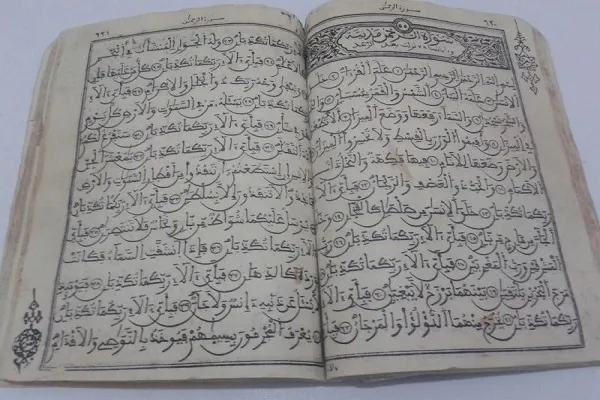 سورة الرحمن
٦٢٠
سورة الرحمن مدنية
بسم الله الرحمن الرحيم الرحمن علم القرءان خلق
الانسان علمه البيان الشمس والقمر بحسبان
والنجم والشجر يسجدان والسماء رفعها ووضع الميزان الا تطغوا
في الميزان واقيموا الوزن بالقسط ولا تخسروا الميزان
والارض وضعها للانام فيها فاكهة والنخل ذات
الاكمام والحب ذو العصف والريحان فبأي ءالاء
ربكما تكذبان خلق الانسان من صلصال كالفخار وخلق
الجان من مارج من نار فبأي ءالاء ربكما تكذبان رب
المشرقين ورب المغربين فبأي ءالاء ربكما تكذبان
مرج البحرين يلتقيان بينهما برزخ لا يبغيان فبأي ءالاء
ربكما تكذبان يخرج منهما اللؤلؤ والمرجان
سورة الرحمن
٦٢١
فبأي ءالاء ربكما تكذبان وله الجوار المنشآت في البحر
كالاعلام فبأي ءالاء ربكما تكذبان كل من عليها فان
ويبقى وجه ربك ذو الجلال والاكرام فبأي ءالاء
ربكما تكذبان يسئله من في السموات والارض كل يوم
هو في شأن فبأي ءالاء ربكما تكذبان سنفرغ لكم
ايه الثقلان فبأي ءالاء ربكما تكذبان يمعشر الجن
والانس ان استطعتم ان تنفذوا من اقطار السموات والارض
فانفذوا لا تنفذون الا بسلطان فبأي ءالاء ربكما تكذبان
يرسل عليكما شواظ من نار ونحاس فلا تنتصران فبأي
ءالاء ربكما تكذبان فاذا انشقت السماء فكانت
وردة كالدهان فبأي ءالاء ربكما تكذبان فيومئذ
لا يسئل عن ذنبه انس ولا جان فبأي ءالاء ربكما
تكذبان يعرف المجرمون بسيماهم فيوخذ بالنواصي والاقدام